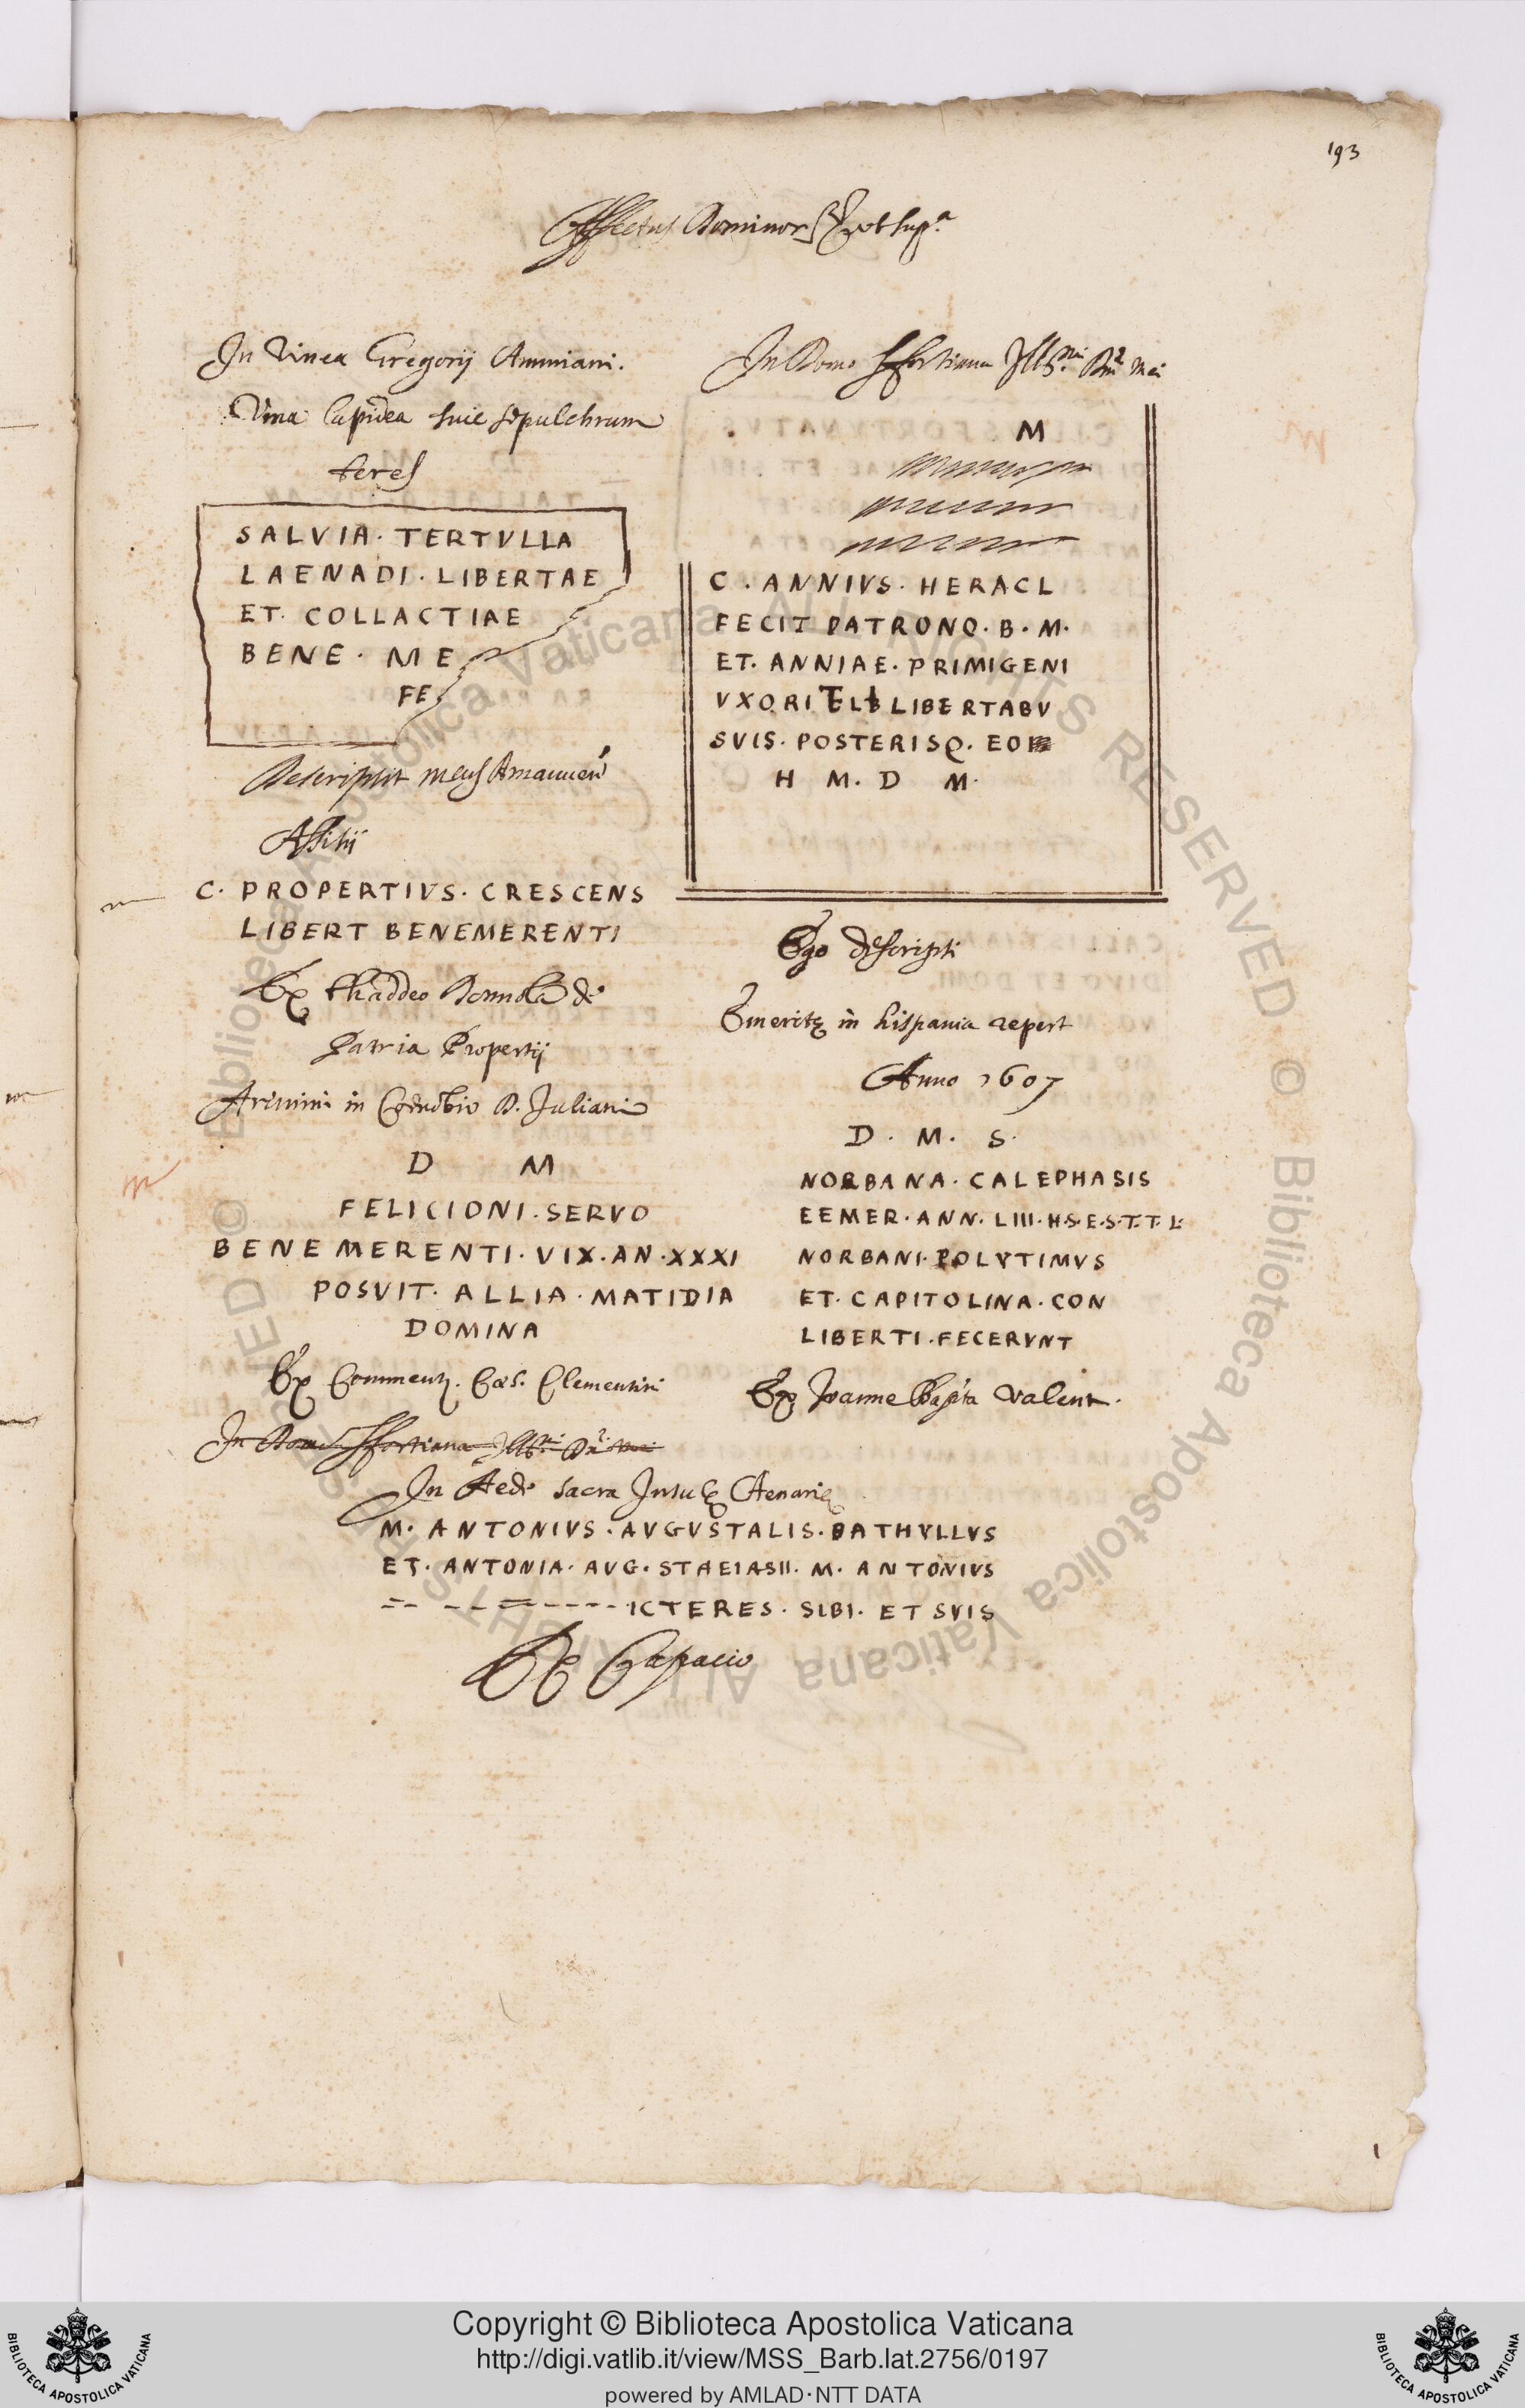 193
Affectus Dominor & ut sup.a
In Vinea Gregorij Ammiani.
Vrna lapidea sive sepulchrum
teres
SALVIA · TERTVLLA
LAENADI · LIBERTAE
ET · COLLACTIAE
BENE · ME
FE
Descripsit meus Amanuen
Assisij
C · PROPERTIVS · CRESCENS
LIBERT BENEMERENTI
Ex thaddeo Donnola de
Patria Propertij
Arimini in Coenobio D. Juliani
D M
FELICIONI · SERVO
BENE MERENTI · VIX · AN · XXXI
POSVIT · ALLIA · MATIDIA
DOMINA
Ex Comment. Caes. Clementini
In Domo Sfortiana Illmi Dni mei
M
C · ANNIVS · HERACL
FECIT PATRONO · B · M ·
ET · ANNIAE · PRIMIGENI
VXORI ELB LIBERTABV
SVIS · POSTERISQ · EO
H M · D M ·
Ego descripsi
Emeritę in hispania repert
Anno 1607
D · M · S ·
NORBANA · CALEPHASIS
EEMER · ANN · LIII · H·S·E·S·T·T·L·
NORBANI · POLYTIMVS
ET · CAPITOLINA · CON
LIBERTI · FECERVNT
Ex Joanne Bapta Valent.
In Domo Sfortiana Illmi Dni mei
In Aede sacra Insulę Aenarię
M · ANTONIVS · AVGVSTALIS · BATHYLLVS
ET · ANTONIA · AVG · STAEIASII · M · ANTONIVS
-- -------- ICTERES · SIBI · ET SVIS
Ex Capacio
Copyright © Biblioteca Apostolica Vaticana
http://digi.vatlib.it/view/MSS_Barb.lat.2756/0197
powered by AMLAD·NTT DATA
BIBLIOTECA APOSTOLICA VATICANA
BIBLIOTECA APOSTOLICA VATICANA
© Biblioteca Apostolica Vaticana ALL RIGHTS RESERVED